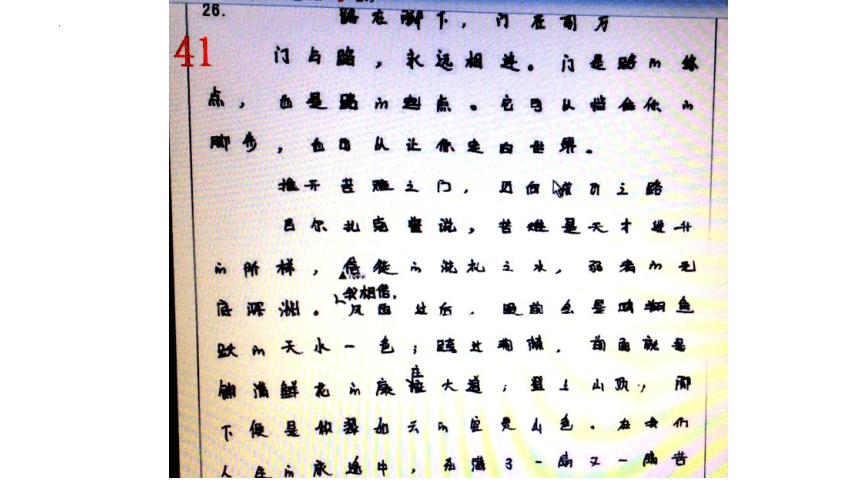 26.
路在脚下，门在前方
41
门与路，永远相连。门是路的终
点，也是路的起点。它可以挡住你的
脚步，也可以让你走向世界。
推开苦难之门，迈向成功之路
巴尔扎克曾说，苦难是天才进升
的阶梯，信徒的洗礼之水，弱者的无
底深渊。我相信，风雨过后，眼前会是鸥翔鱼
跃的天水一色；踏过荆棘，前面就是
铺满鲜花的康庄大道；登上山顶，脚
下便是积翠如云的空灵山色。在我们
人生的旅途中，充满了一扇又一扇苦